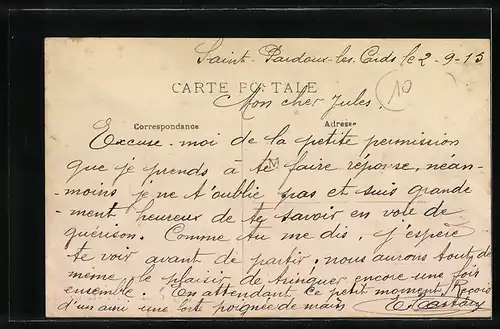 Saint-Pardoux-les-Cards le 2-9-13
10
CARTE POSTALE
Mon cher Jules.
Correspondance
Adresse
Excuse-moi de la petite permission
que je prends à te faire réponse, néan-
-moins je ne t'oublie pas et suis grande
-ment heureux de te savoir en voie de
guérison. Comme tu me dis, j'espère
te voir avant de partir; nous aurons tout de
même le plaisir de trinquer encore une fois
ensemble. En attendant ce petit moment, Reçois
d'un ami une forte poignée de main